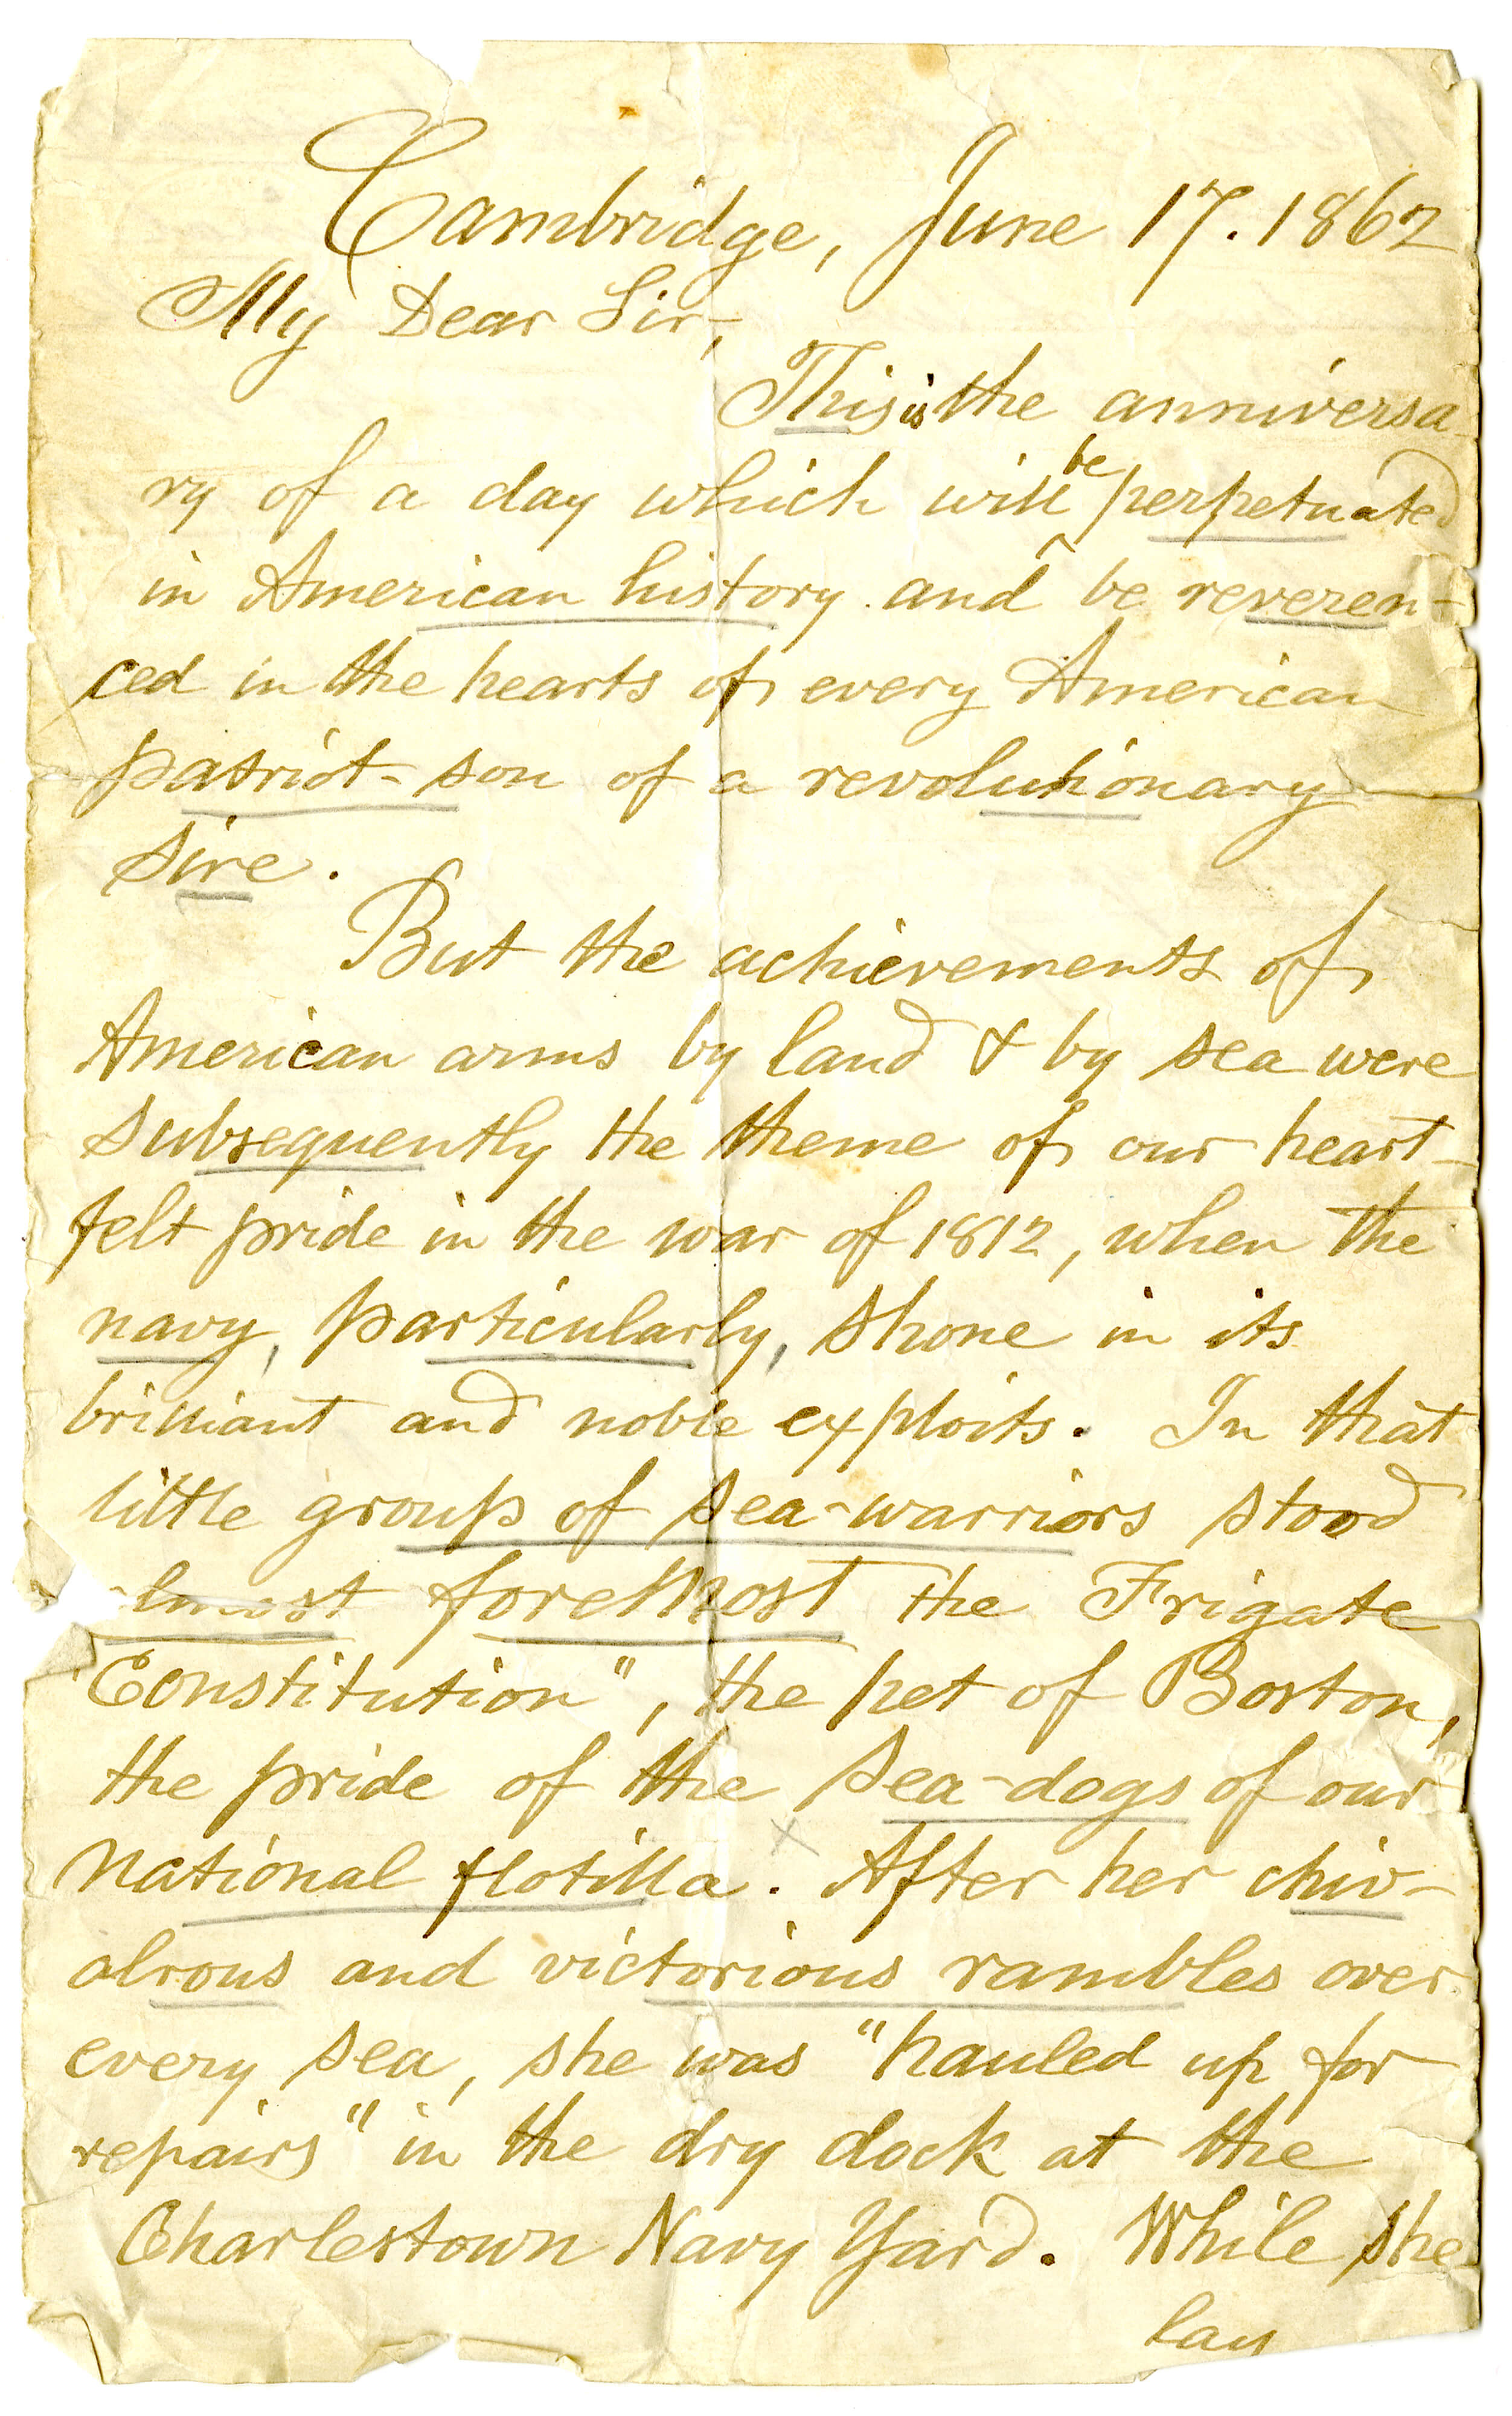 Cambridge, June 17. 1862
My Dear Sir,
This is the anniversa-
ry of a day which will be perpetuated
in American history and be reveren-
ced in the hearts of every American
patriot-son of a revolutionary
sire.
But the achievements of
American arms by land & by sea were
subsequently the theme of our heart-
felt pride in the war of 1812, when the
navy, particularly, shone in its
brilliant and noble exploits. In that
little group of sea-warriors stood
-lmost foremost the Frigate
"Constitution", the pet of Boston,
the pride of the sea-dogs of our
national flotilla. After her chiv-
alrous and victorious rambles over
every sea, she was "hauled up for
repairs" in the dry dock at the
Charlestown Navy Yard. While she
lay